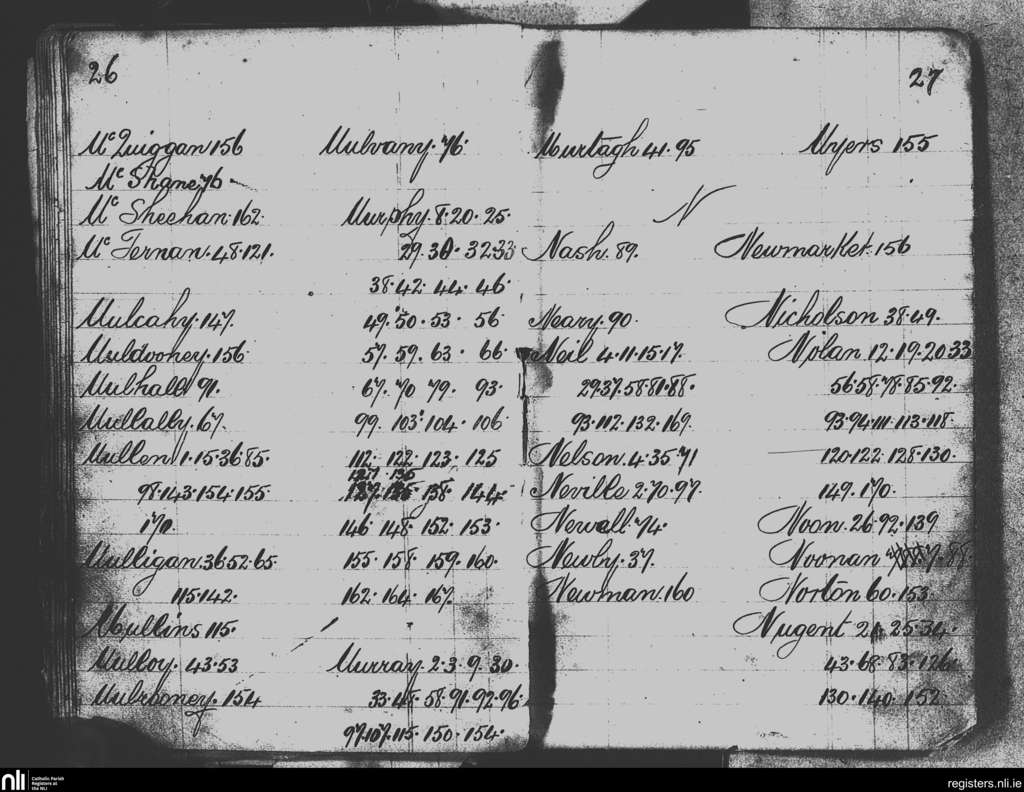 26
Mc Quiggan 156
Mc Shane 76
Mc Sheehan. 162
Mc Ternan. 48. 121.
Mulcahy. 147.
Muldooney. 156
Mulhall 91.
Mullally. 67.
Mullen 1. 15. 36 85.
98. 143. 154. 155
170.
Mulligan. 36. 52. 65.
115. 142.
Mullins 115.
Mulloy. 43. 53
Mulrooney. 154
Mulvany. 76.
Murphy. 8. 20. 25.
29. 30. 32. 33
38. 42. 44. 46.
49. 50. 53. 56
57. 59. 63. 66
67. 70 79. 93
99. 103. 104. 106
112. 122. 123. 125
127. 135
138. 144.
146 148. 152. 153.
155. 158 159. 160.
162. 164. 167.
Murray. 2. 3. 9. 30.
33. 48. 58. 91. 92. 96.
97. 107. 115. 150. 154.
27
Murtagh 41. 95
Myers 155
N
Nash. 89.
Neary. 90.
Neil 4. 11. 15. 17.
29. 37. 58. 81. 88.
93. 112. 132. 169.
Nelson. 4. 35. 71
Neville 2. 70. 97.
Newall. 74.
Newly. 37.
Newman. 160
Newmarket. 156
Nicholson 38. 49.
Nolan 12. 19. 20 33
56. 58. 78. 85. 92.
93. 94. 111. 113. 118.
120. 122. 128. 130.
149. 170.
Noon. 26. 92. 139
Noonan 88
Norton 60. 153
Nugent 21. 25. 34.
43. 68. 83. 126
130. 140. 152
nli Catholic Parish
Registers at
the NLI
registers.nli.ie